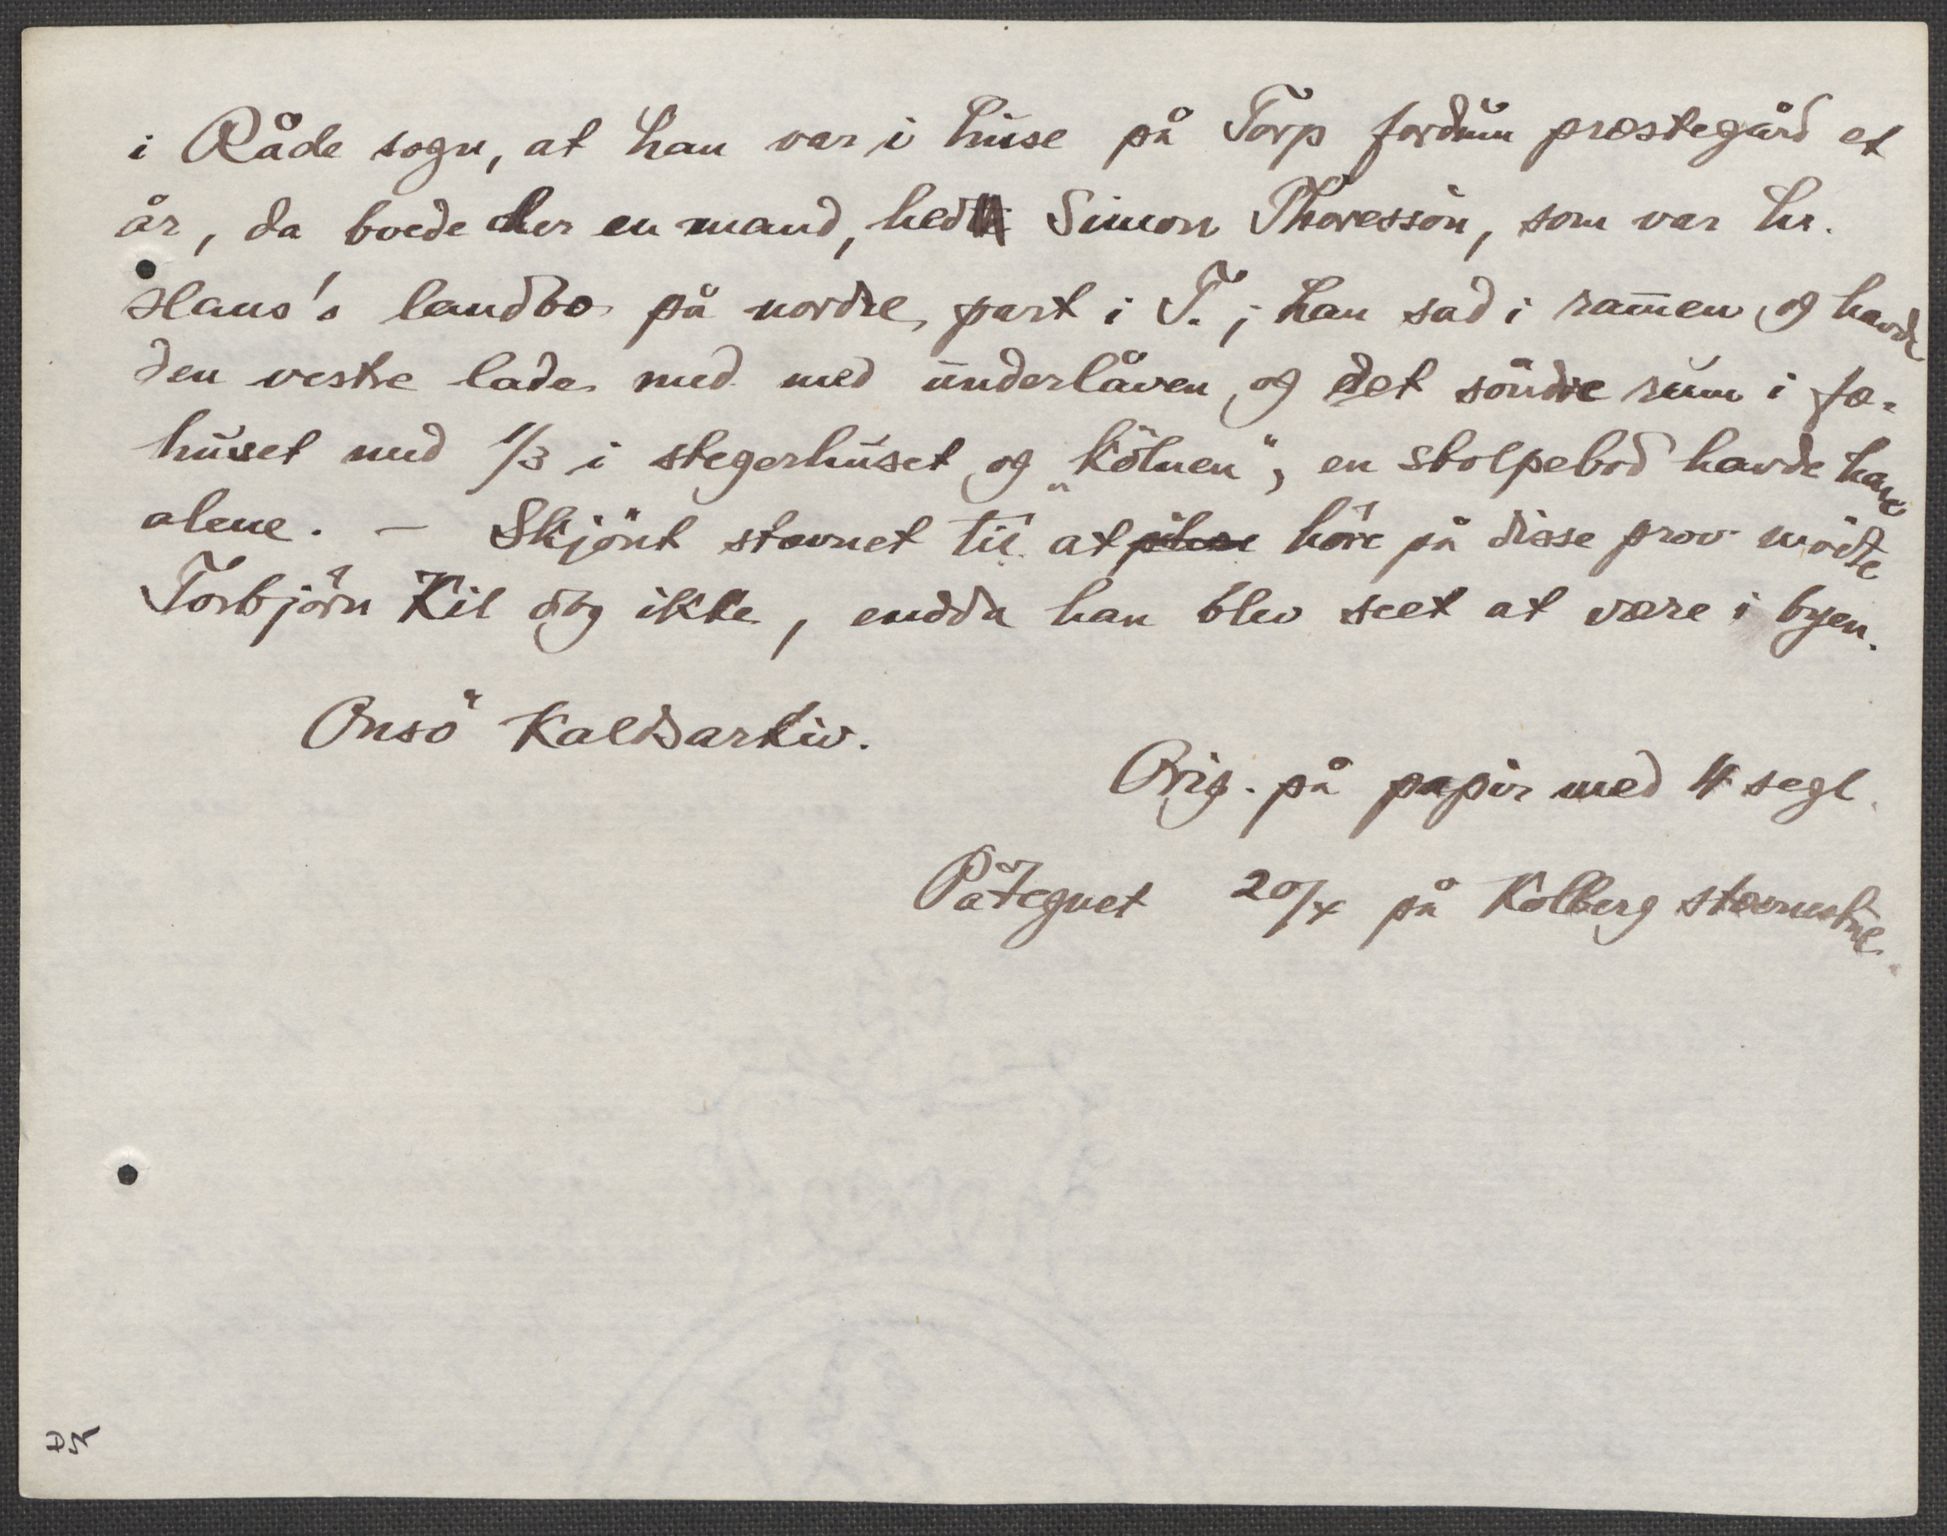 i Råde sogn, at han var i huse på Torp fordum præstegård et
år, da boede der en mand, hed Simon Thoressön, som var hr.
Hans's landbo på nordre part i T.; han sad i ram̄en og havde
den vestre lade med med underlåven og det söndre rum i fæ-
huset med 1/3 i stegerhuset og „kölnen", en stolpebod havde han
alene. – Skjönt stævnet til at höre på disse prov mödte
Torbjörn Kil dog ikke, endda han blev seet at være i byen.
Onsö Kaldsarkiv.
Orig. på papir med 4 segl.
Påtegnet 20/4 på Kolberg stævnestue.